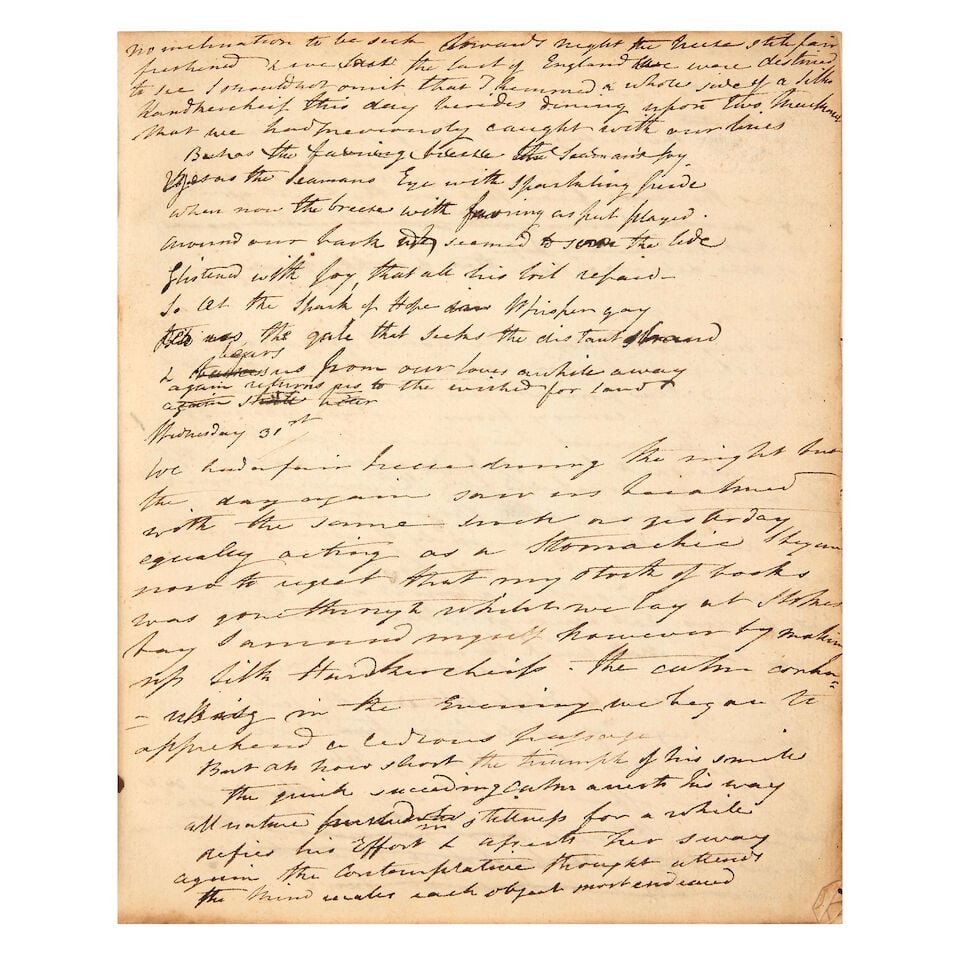 no inclination to be sick towards night the breeze still fair
freshened & we lost the last of England we were destined
to see I should not omit that I hemmed a whole side of a silk
Handkercheif this day besides dining upon two
that we had previously caught with our lines
the favoring breeze the Seaman's joy
was the Seamans Eye with sparkling pride
when now the breeze with favoring aspect played.
around our bark seemed to the tide
Glistened with Joy, that all his toil repaid
So at the spark of Hope Whisper gay
the gale that seeks the distant strand
& bears us from our loves awhile away
again returns us to the wished for land
again
Wednesday 31st
We had a fair breeze during the night but
the day again saw us becalmed
with the same luck as yesterday
equally acting as a Stomachic I began
now to regret that my stock of books
was gone through whilst we lay at Stokes
bay I amused myself however by making
up silk Handkercheifs - the calm contin=
=uing in the Evening we began to
apprehend a tedious passage
But ah how short the triumph of his smile
the quick succeeding calm arrests his way
all nature in stillness for a while
defies his Effort & asserts her sway
again the contemplative thought attends
the Mind each object most endeared